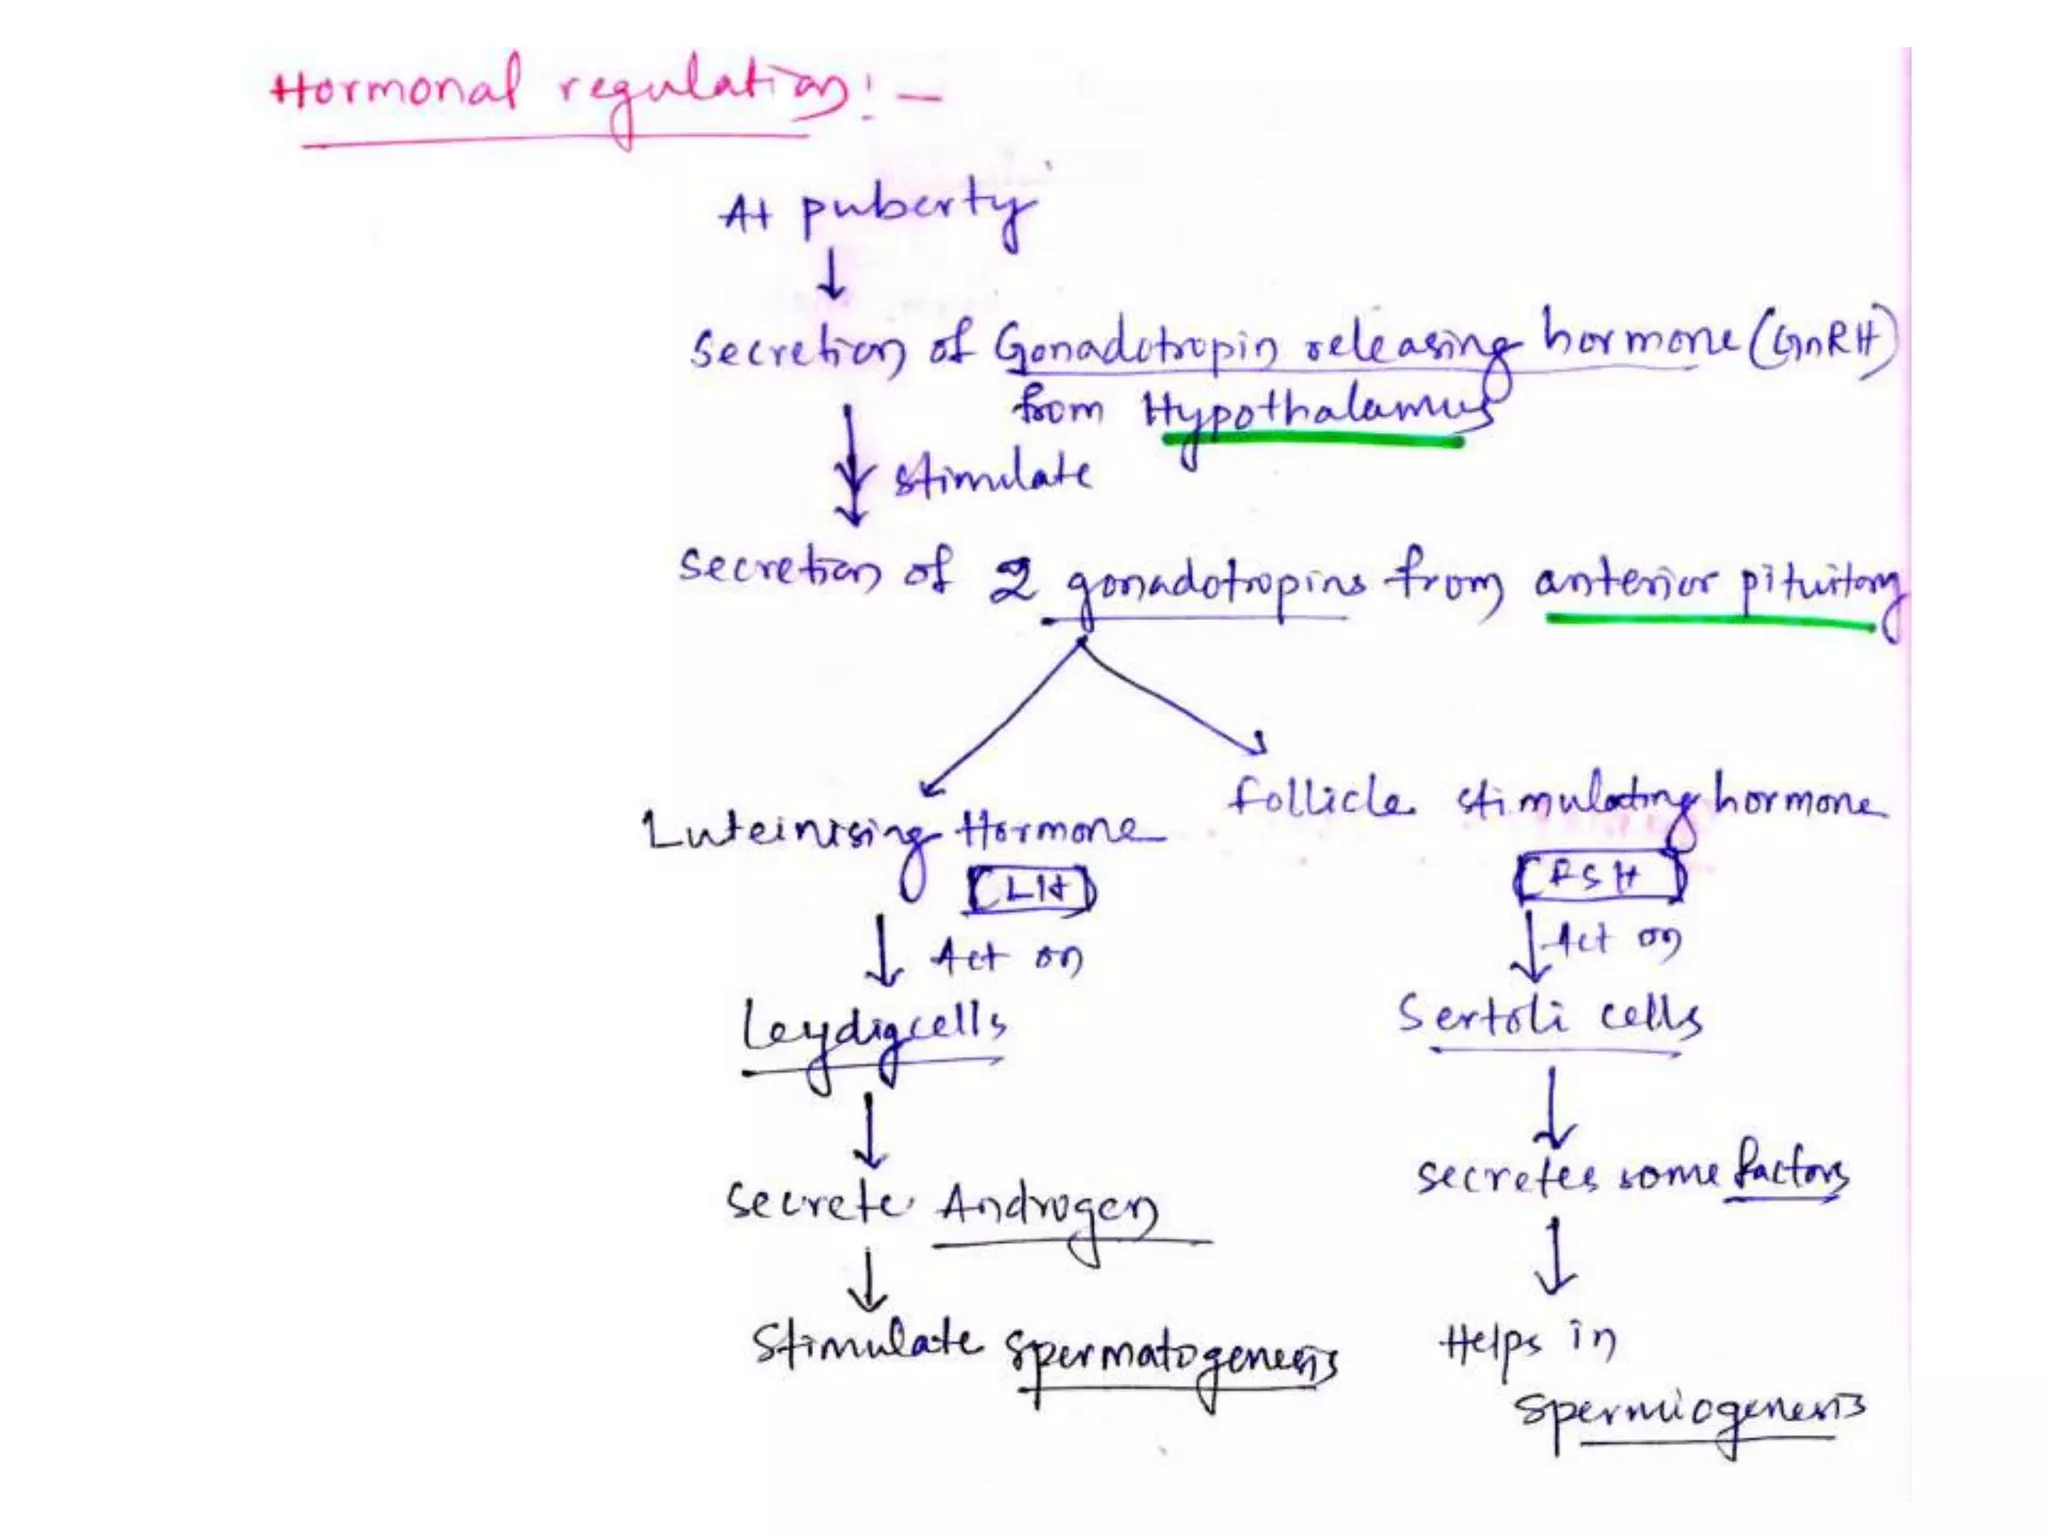 Hormonal regulation:-
At puberty
Secretion of Gonadotropin releasing hormone (GnRH)
from Hypothalamus
stimulate
Secretion of 2 gonadotropins from anterior pituitary
Luteinising Hormone
(LH)
Act on
Leydigcells
Secrete Androgen
Stimulate spermatogenesis
Follicle stimulating hormone
(FSH)
Act on
Sertoli cells
secretes some factors
Helps in
spermiogenesis